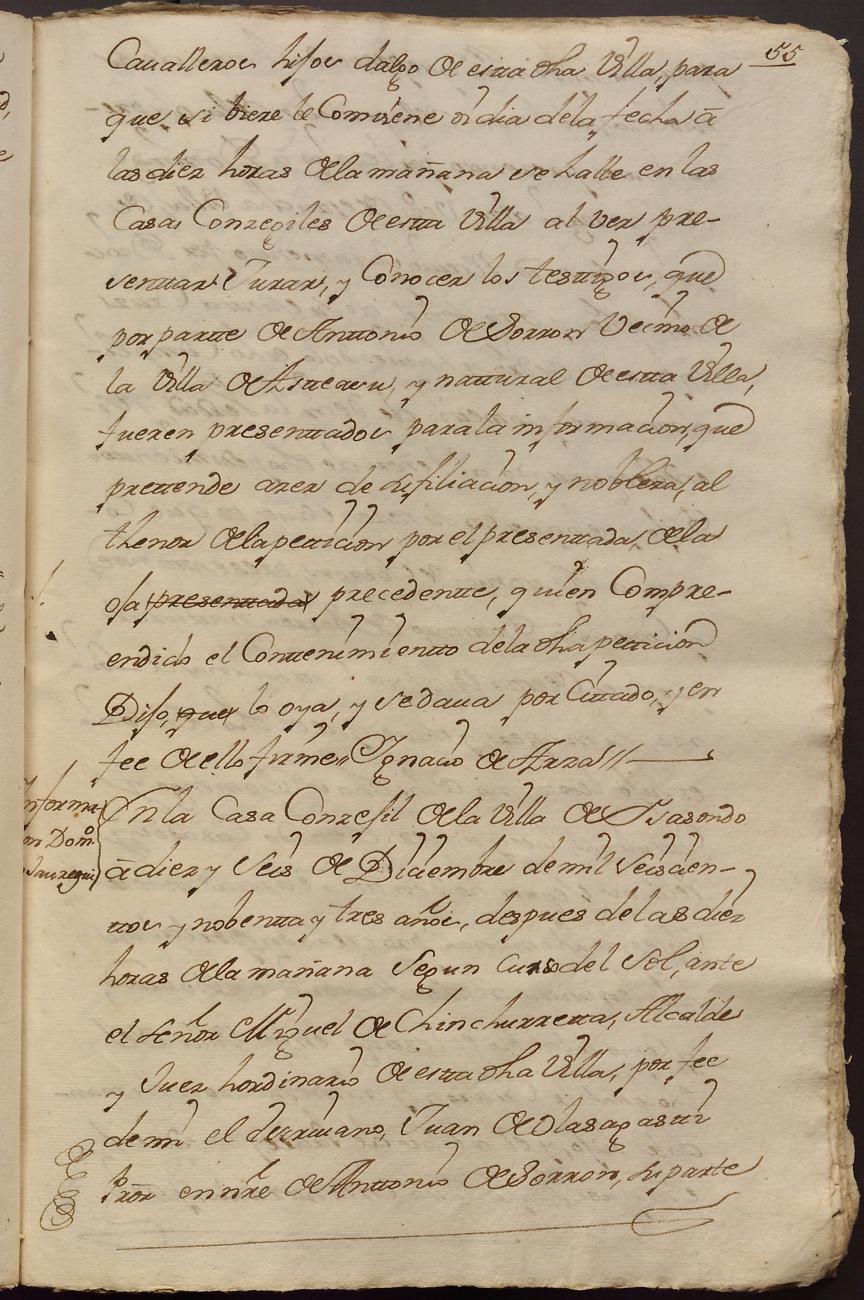 55
Caualleros hijos dalgo de esta dha Villa, para
que si biere le Combiene oi dia de la fecha â
las diez horas de la mañana se halle en las
Casas Conzegiles de estta Villa al ver pre-
senttar Jurar, y Conocer los testtigos, que
por partte de Anttonio de Sorron Vecino de
la Villa de Asteasu, y natural de estta Villa,
fueren presenttados para la informacion, que
prettende azer de su filiacion, y nobleza, al
thenor de la petticion por el presenttada, de la
oja presenttada precedentte, quien Compre-
endido el Conttenimientto de la dha petticion
Dijo, que lo oya, y se daua por Cittado, y en
fee de ello firme// Ygnacio de Arza//
Informa-
on Domo
Jauregui
En la Casa Conzejil de la Villa de Ysasondo
â diez y Seis de Diciembre de mil Seiscien-
ttos y nobentta y tres años, despues de las diez
horas de la mañana Segun Curso del Sol, ante
el señor Miguel de Chinchurretta, Alcalde
y Juez hordinario de estta dha Villa, por fee
de mi el Escriuano, Juan de Olasagastti
Pror en nre de Anttonio de Sorron, su parte